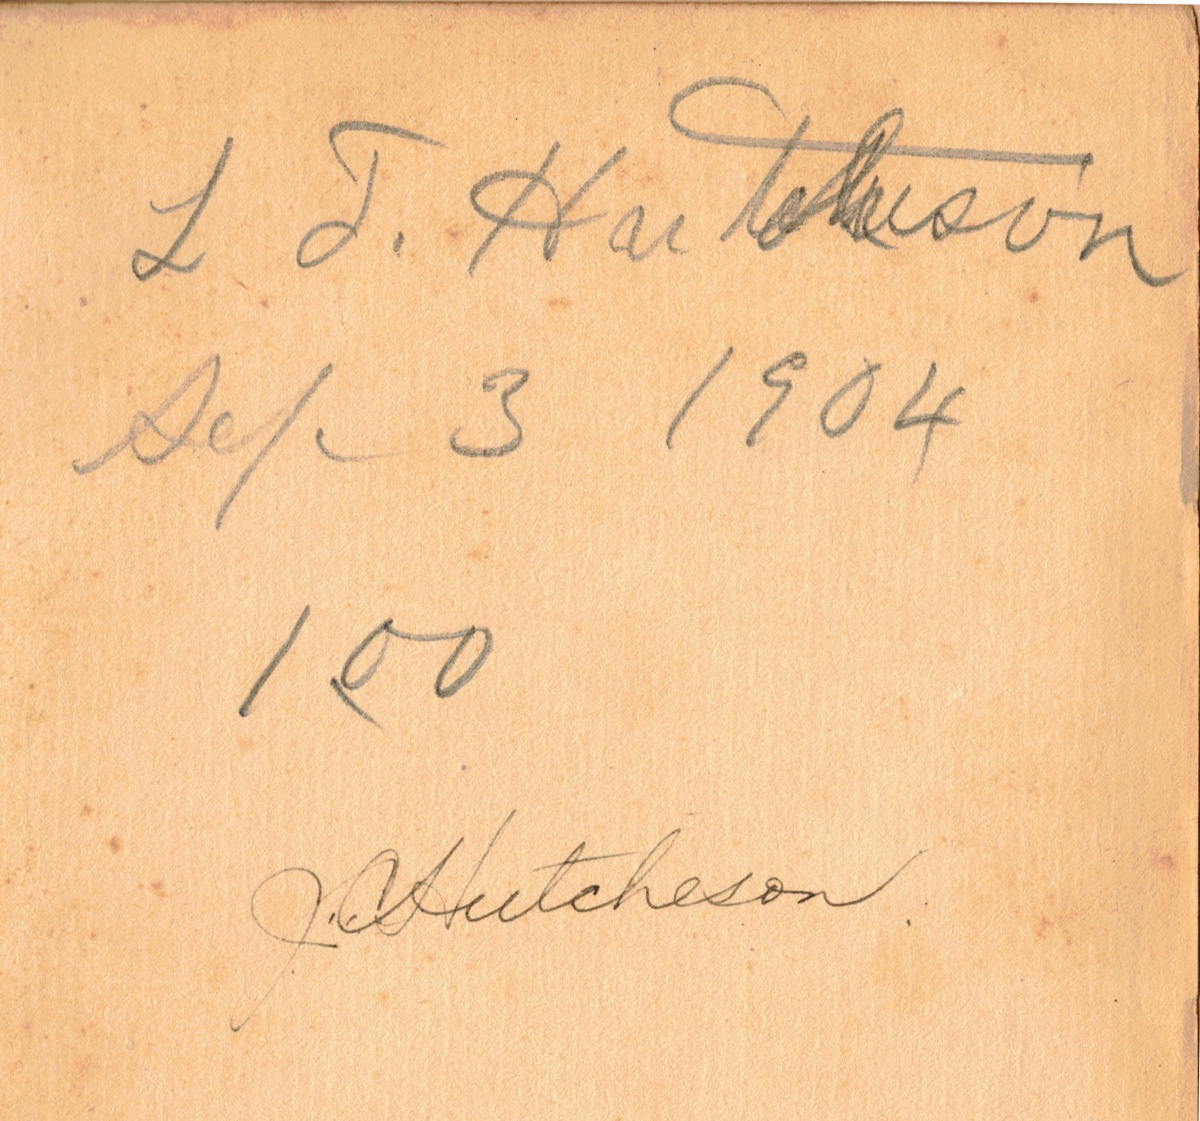 L T. Hutcheson
Sep 3 1904
100
J. C. Hutcheson.